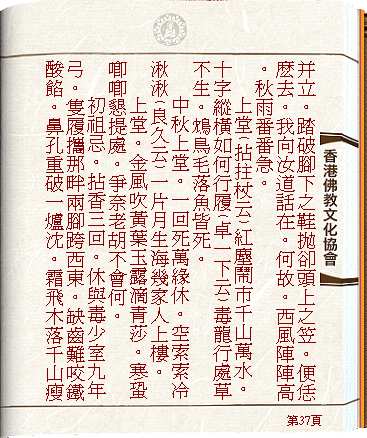 并立。踏破腳下之鞋拋卻頭上之笠。便恁
麼去。我向汝道話在。何故。西風陣陣高
。秋雨番番急。
上堂(拈拄杖云)紅塵鬧市千山萬水。
十字縱橫如何行履(卓一下云)毒龍行處草
不生。鴆鳥毛落魚皆死。
中秋上堂。一回死萬緣休。空索索冷
湫湫(良久云)一片月生海幾家人上樓。
上堂。金風吹黃葉玉露滴青莎。寒蛩
唧唧懇提處。爭奈老胡不會何。
初祖忌。拈香三回。休與毒少室九年
弓。隻履攜那畔兩腳跨西東。缺齒難咬鐵
酸餡。鼻孔重破一爐沈。霜飛木落千山瘦
香港佛教文化協會
第37頁